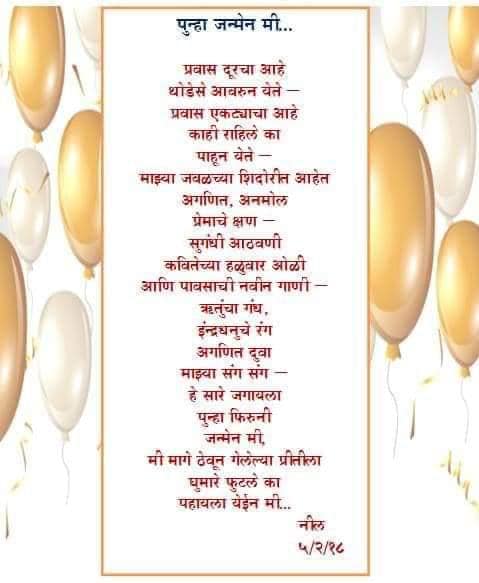 पुन्हा जन्मेन मी...
प्रवास दूरचा आहे
थोडेसे आवरुन येते –
प्रवास एकट्याचा आहे
काही राहिले का
पाहून येते –
माझ्या जवळच्या शिदोरीत आहेत
अगणित, अनमोल
प्रेमाचे क्षण –
सुगंधी आठवणी
कवितेच्या हळुवार ओळी
आणि पावसाची नवीन गाणी –
ऋतुंचा गंध,
इंद्रधनुचे रंग
अगणित दुवा
माझ्या संग संग –
हे सारे जगायला
पुन्हा फिरुनी
जन्मेन मी,
मी मागे ठेवून गेलेल्या प्रीतीला
घुमारे फुटले का
पहायला येईन मी...
नील
५/२/१८